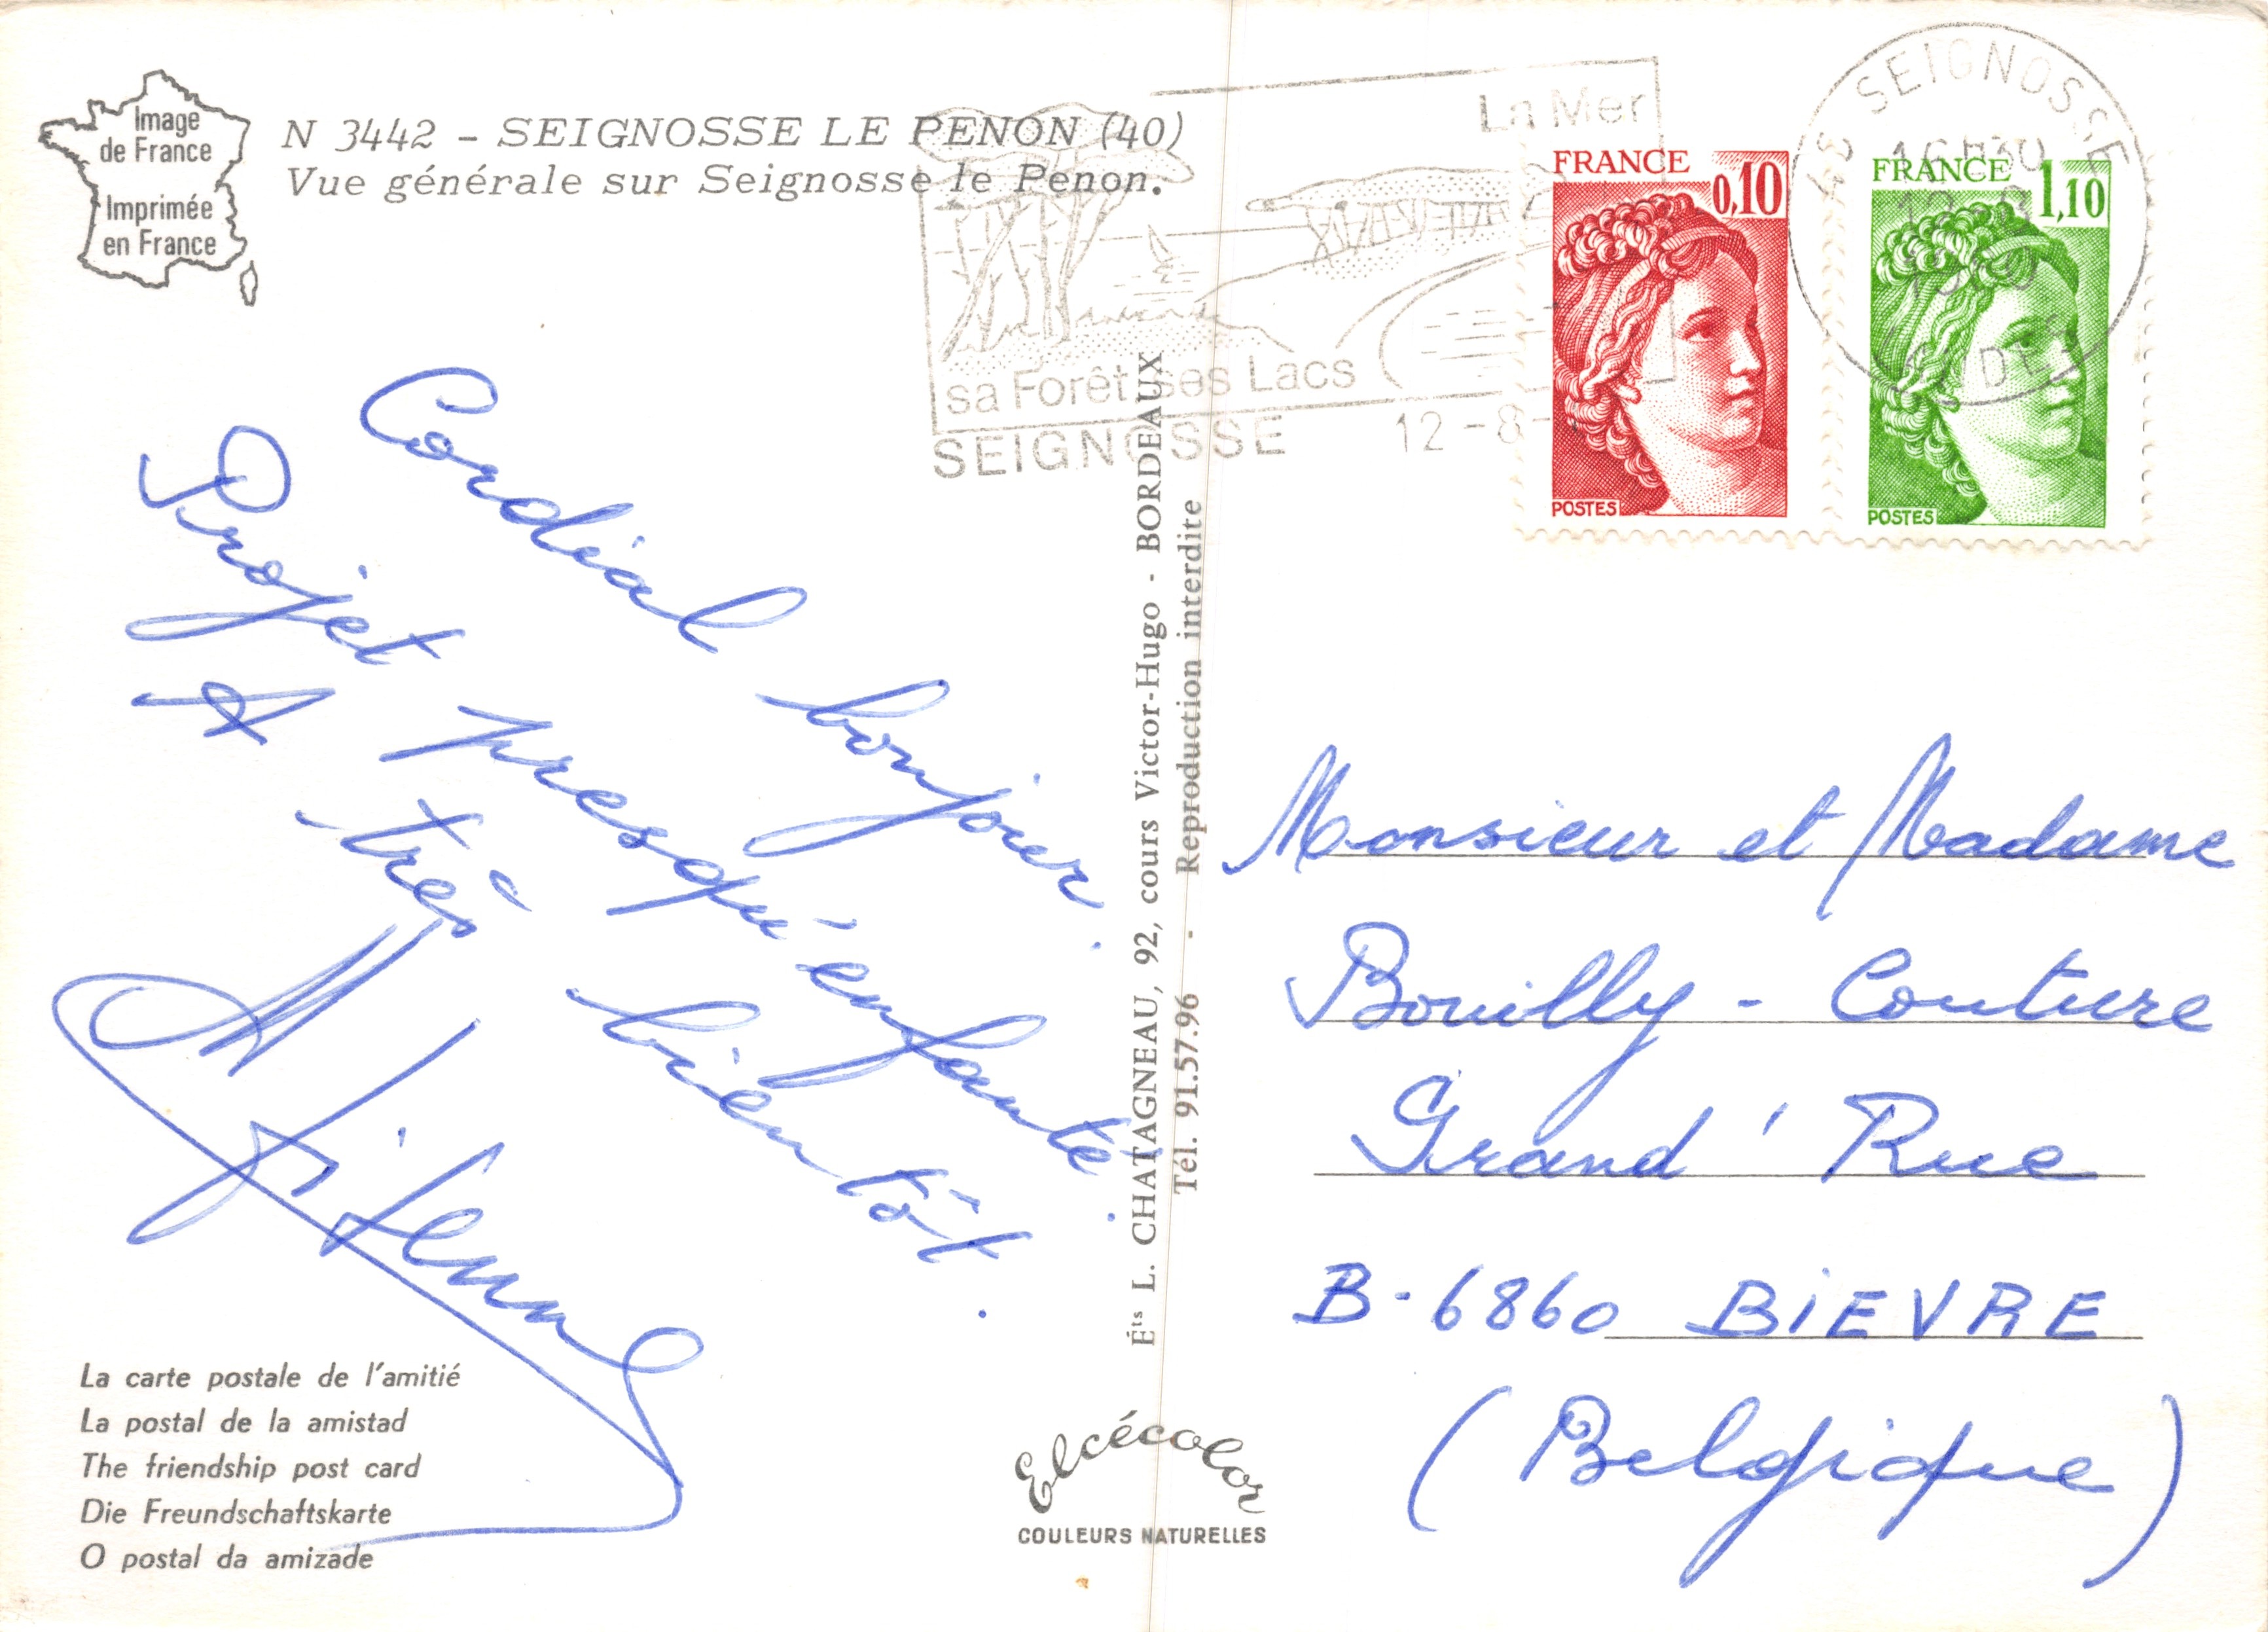 Image
de France
Imprimée
en France
N 3442 - SEIGNOSSE LE PENON (40)
Vue générale sur Seignosse le Penon.
La Mer
sa Forêt ses Lacs
SEIGNOSSE 12-8-
SEIGNOSSE
FRANCE 0,10
POSTES
FRANCE 1,10
POSTES
Cordial bonjour.
Projet presqu'enfanté.
A très bientôt.
Éts L. CHATAGNEAU, 92, cours Victor-Hugo - BORDEAUX
Tél. 91.57.96 - Reproduction interdite
Monsieur et Madame
Bouilly - Couture
Grand' Rue
B-6860 BiEVRE
(Belgique)
La carte postale de l'amitié
La postal de la amistad
The friendship post card
Die Freundschaftskarte
O postal da amizade
Elcécolor
COULEURS NATURELLES